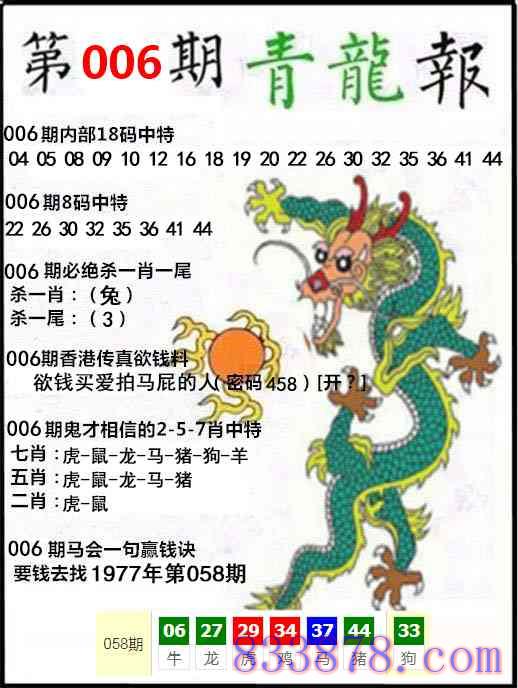 第006期青龍報
006期内部18码中特
04 05 08 09 10 12 16 18 19 20 22 26 30 32 35 36 41 44
006期8码中特
22 26 30 32 35 36 41 44
006期必绝杀一肖一尾
杀一肖：（兔）
杀一尾：（3）
006期香港传真欲钱料
欲钱买爱拍马屁的人(密码458)[开？]
006期鬼才相信的2-5-7肖中特
七肖：虎-鼠-龙-马-猪-狗-羊
五肖：虎-鼠-龙-马-猪
二肖：虎-鼠
006期马会一句赢钱诀
要钱去找1977年第058期
058期 06 27 29 34 37 44 33
牛 龙 虎 鸡 马 猪 狗
833878.com